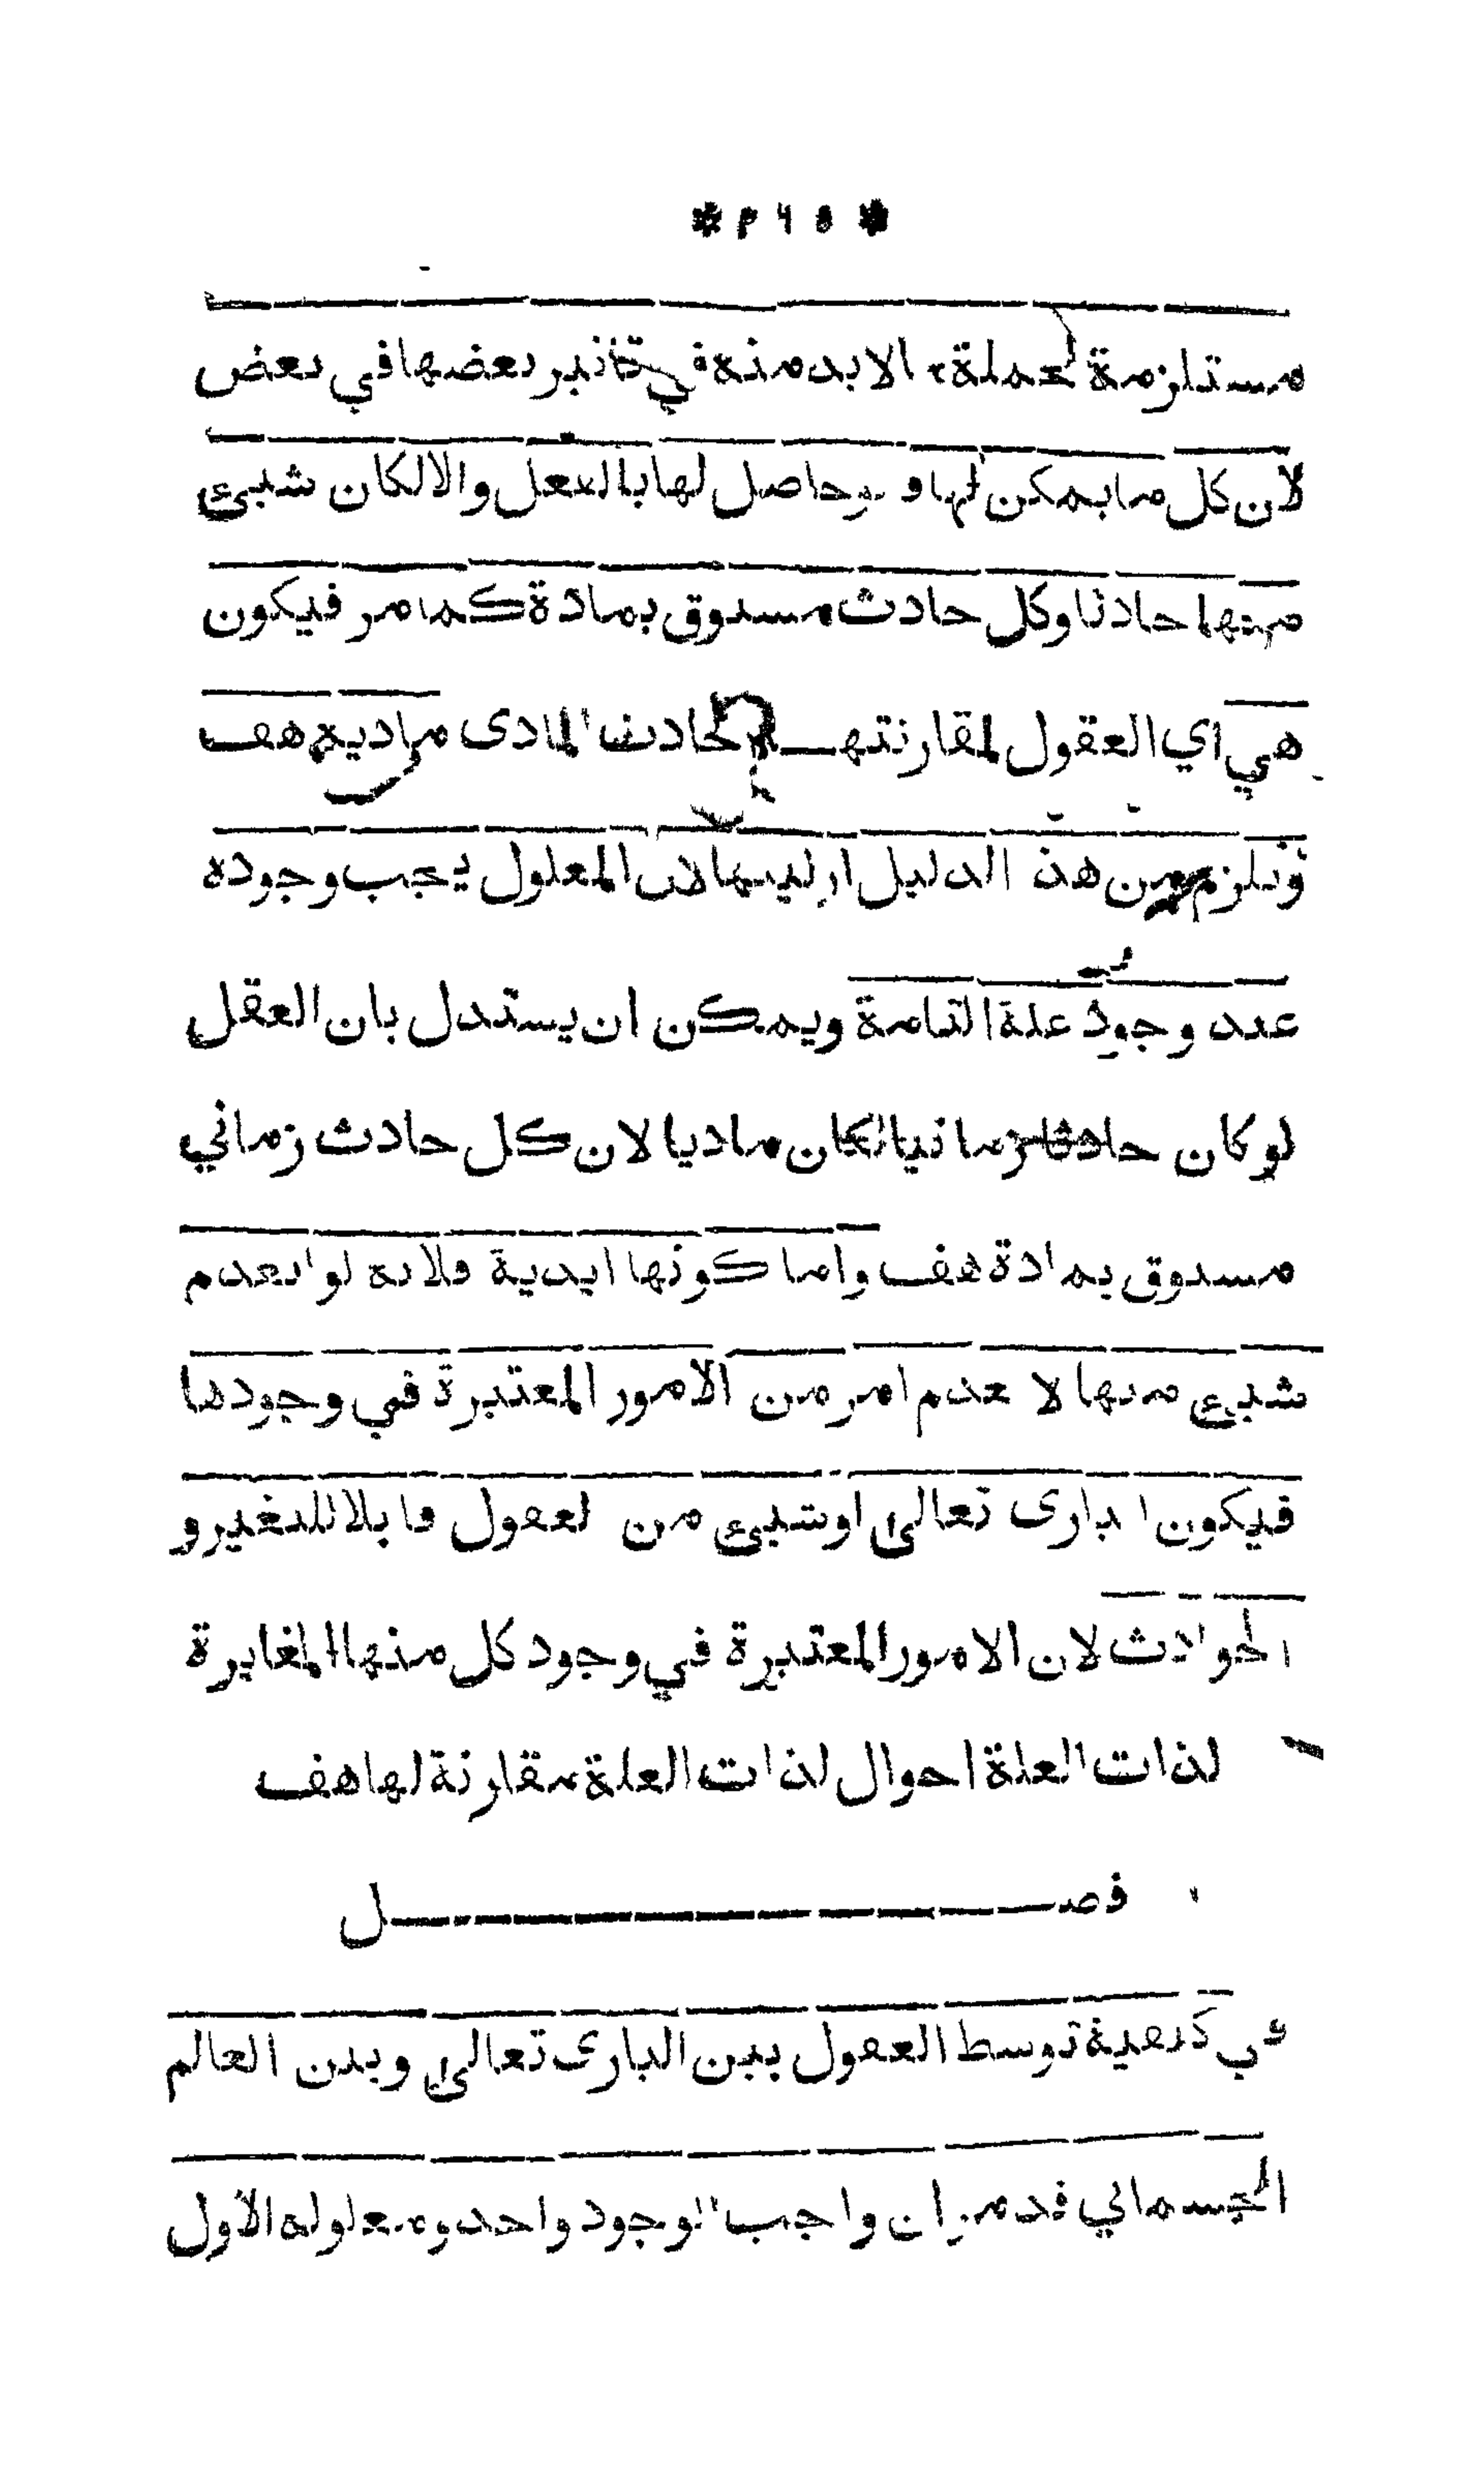 مستلزمة لجملة ما لا بد منه في تاثير بعضها في بعض
لان كل ما يمكن لها فهو حاصل لها بالفعل والا لكان شيئ
منها حادثا وكل حادث مسبوق بمادة كما مر فيكون
هي اي العقول لمقارنتها الحادث المادى مادية هف
ويلزم من هذا الدليل ازليتها لان المعلول يجب وجوده
عند وجود علة التامة ويمكن ان يستدل بان العقل
لو كان حادثا زمانيا لكان ماديا لان كل حادث زماني
مسبوق بمادة هف واما كونها ابدية فلانه لو انعدم
شيئ منها لا عدم امر من الامور المعتبرة في وجودها
فيكون البارى تعالى او شيئ من العقول قابلا للتغير و
الحوادث لان الامور المعتبرة في وجود كل منها المغايرة
لذات العلة احوال لذات العلة مقارنة لها هف
فصل
في كيفية توسط العقول بين البارى تعالى وبين العالم
الجسماني قد مر ان واجب الوجود واحد ومعلوله الاول